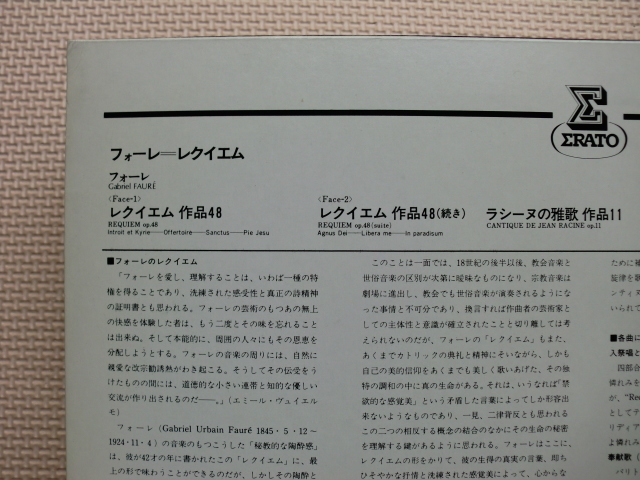 ERATO
フォーレ=レクイエム
フォーレ
Gabriel FAURÉ
〈Face-1〉
レクイエム 作品48
REQUIEM op.48
Introit et Kyrie——Offertoire——Sanctus——Pie Jesu
〈Face-2〉
レクイエム 作品48(続き)
REQUIEM op.48(suite)
Agnus Dei——Libera me——In paradisum
ラシーヌの雅歌 作品11
CANTIQUE DE JEAN RACINE op.11
■フォーレのレクイエム
「フォーレを愛し、理解することは、いわば一種の特
権を得ることであり、洗練された感受性と真正の詩精神
の証明書とも思われる。フォーレの芸術のもつあの無上
の快感を体験した者は、もう二度とその味を忘れること
は出来ぬ。そして本能的に、周囲の人々にもその恩恵を
分配しようとする。フォーレの音楽の周りには、自然に
親愛な改宗勧誘熱がわき起こる。そうしてその伝受をう
けたものの間には、道徳的な小さい連帯と知的な優しい
交流が作り出されるのだ——。」(エミール・ヴュイエル
モ)
フォーレ (Gabriel Urbain Fauré 1845・5・12〜
1924・11・4) の音楽のもつこうした「秘教的な陶酔感」
は、彼が42才の年に書かれたこの「レクイエム」に、最
上の形で味わうことができるのだが、しかしその陶酔と
このことは一面では、18世紀の後半以後、教会音楽と
世俗音楽の区別が次第に曖昧なものになり、宗教音楽は
劇場に進出し、教会でも世俗音楽が演奏されるようにな
った事情と不可分であり、換言すれば作曲者の芸術家と
しての主体性と意識が確立されたことと切り離しては考
えられないのだが、フォーレの「レクイエム」もまた、
あくまでカトリックの典礼と精神にそいながら、しかも
自己の美的信仰をあくまでも美しく歌いあげた、その独
特の調和の中に真の生命がある。それは、いうなれば「禁
欲的な感覚美」という矛盾した言葉によってしか形容出
来ないようなものであり、一見、二律背反とも思われる
この二つの相反する概念の結合のなかにその生命の秘密
を理解する鍵があるように思われる。フォーレはここに、
レクイエムの形をかりて、彼の生得の真実の言葉、即ち
ひそやかな抒情と洗練された感覚美によって、心からな
ために補
旋律を歌
ンティヌ
いられて
■各曲に
入祭唱と
四部合
憐れみを
が、"Req
としてテ
リディア
よ憐れみ
奉献歌(
バリト